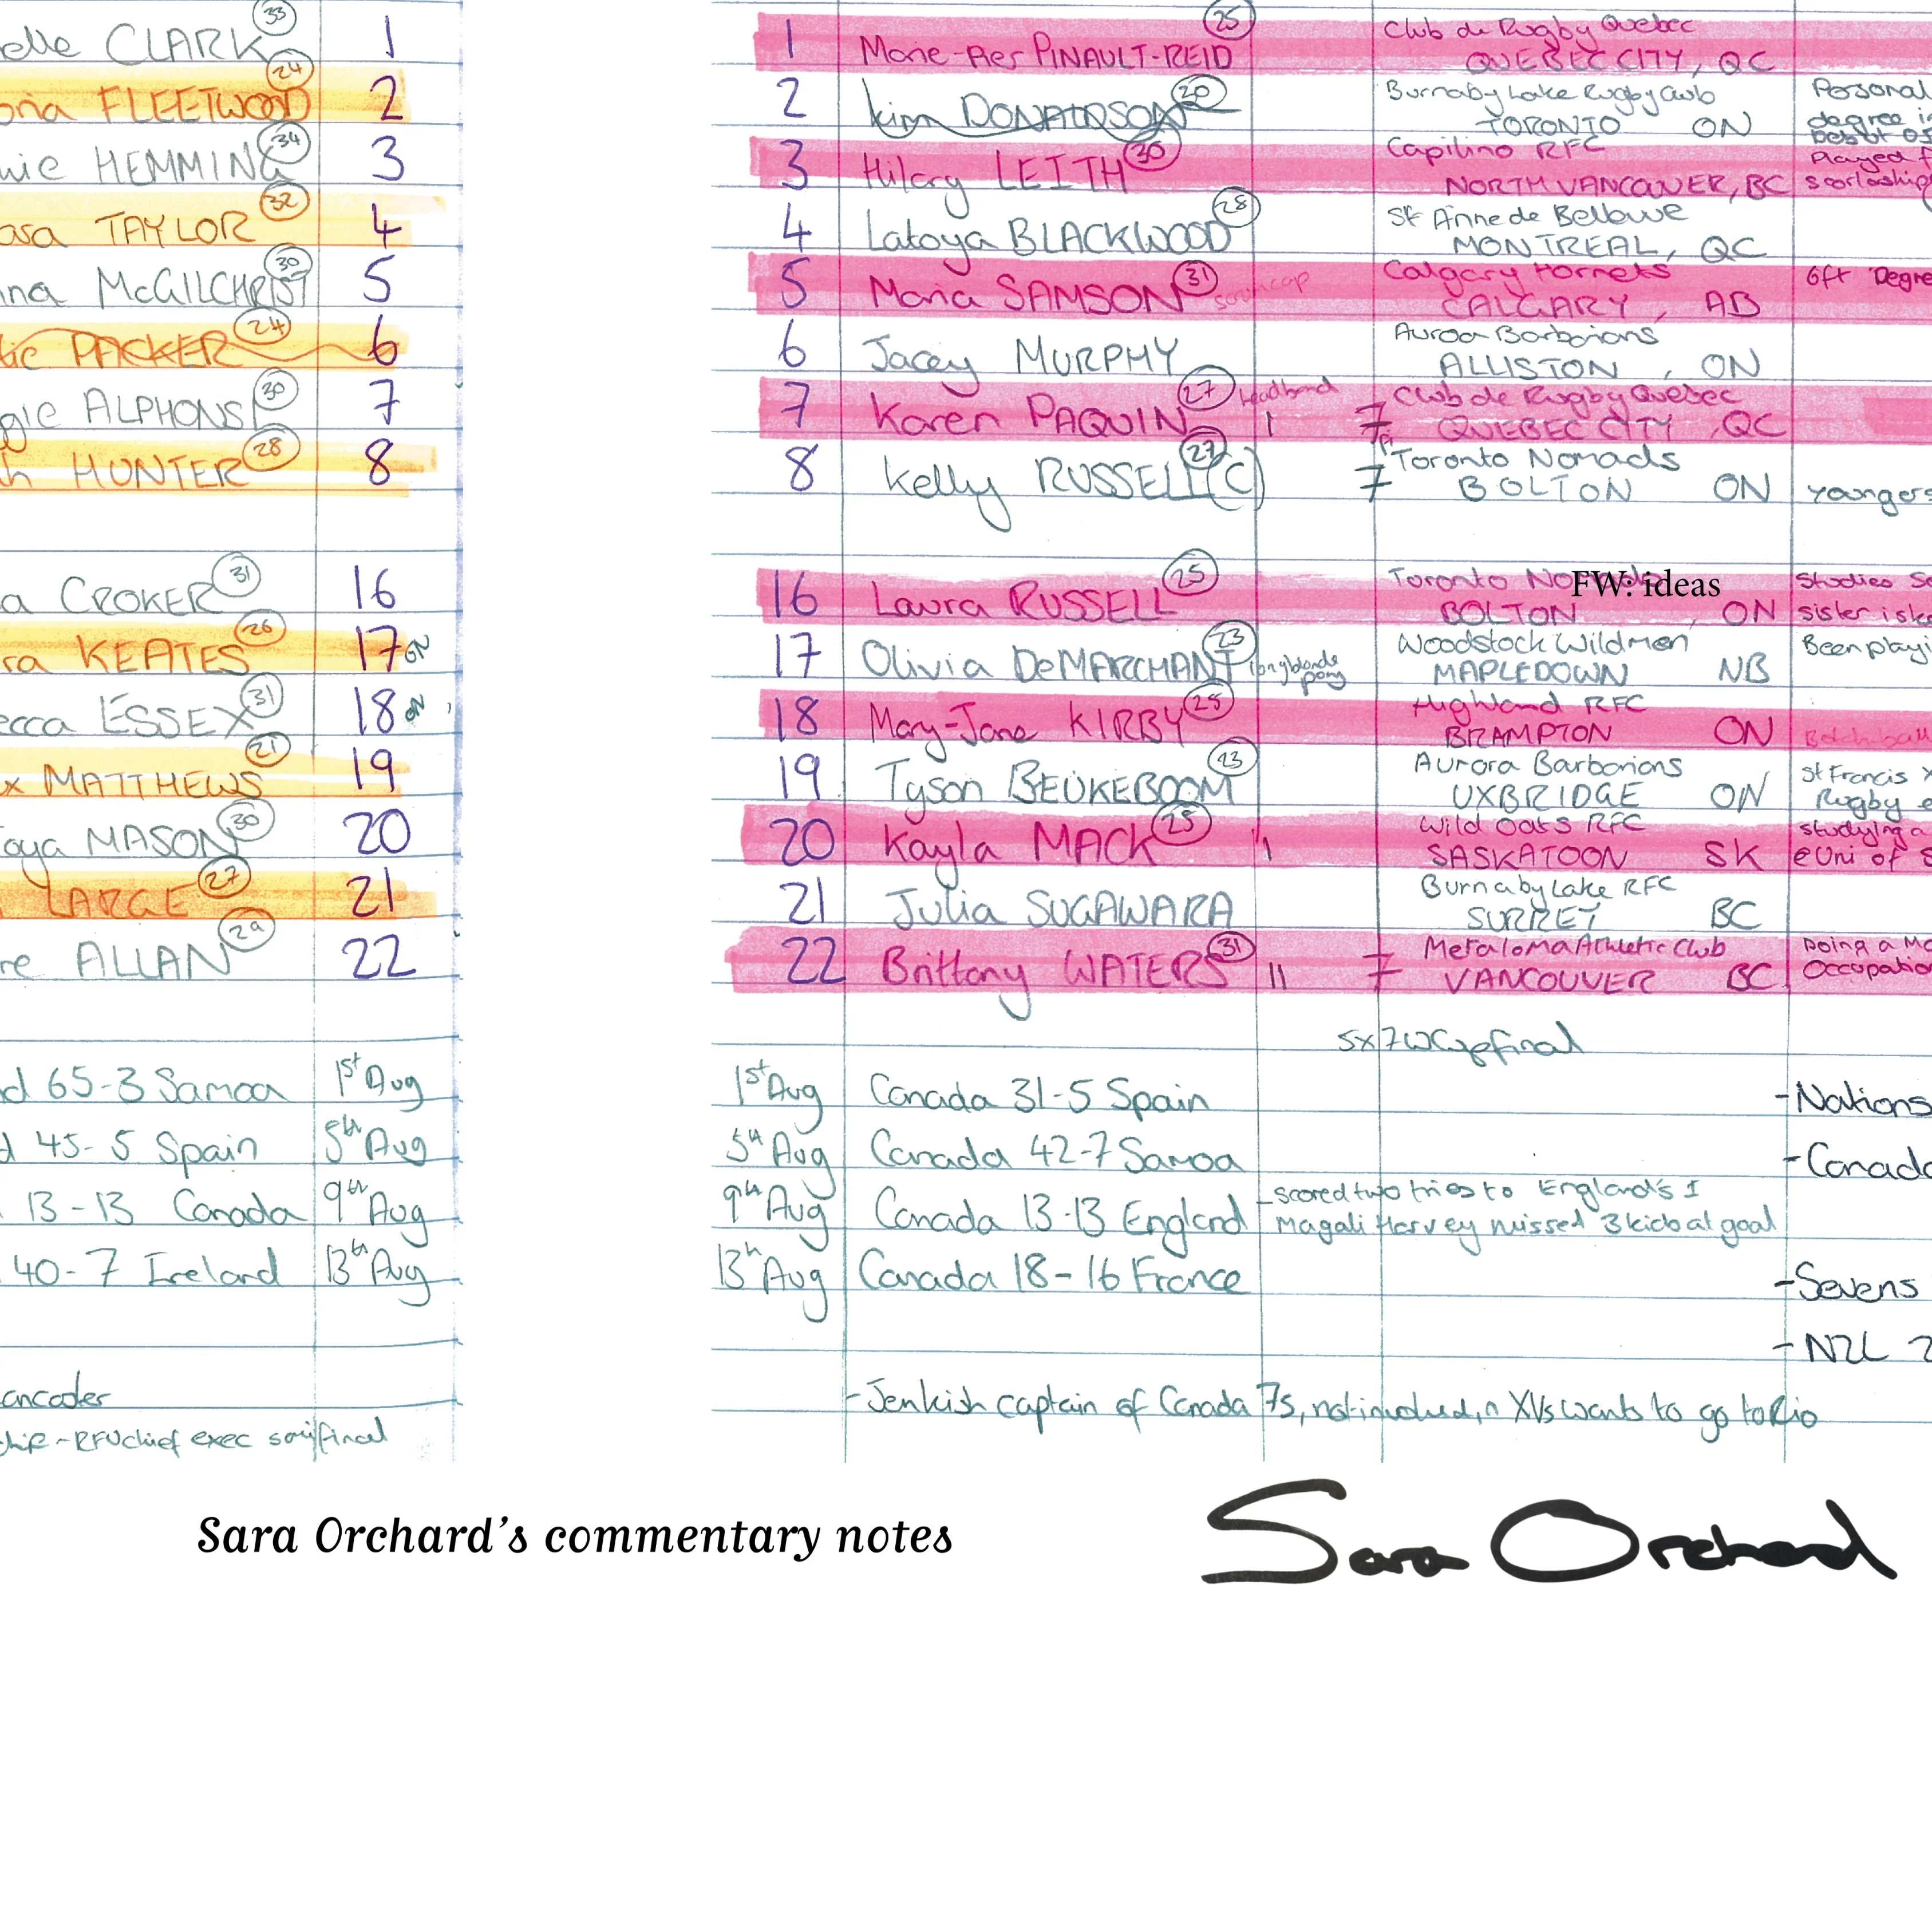 elle CLARK 33 1
oria FLEETWOOD 24 2
wie HEMMING 34 3
asa TAYLOR 32 4
nna McGILCHRIST 30 5
tie PACKER 24 6
ggie ALPHONSI 30 7
h HUNTER 28 8
a CROKER 31 16
ra KEATES 26 17 ON
ecca ESSEX 31 18 ON
x MATTHEWS 21 19
oya MASON 30 20
LARGE 27 21
re ALLAN 29 22
d 65-3 Samoa 1st Aug
d 45-5 Spain 5th Aug
13-13 Canada 9th Aug
40-7 Ireland 13th Aug
ancader
- RFU chief exec
1 Marie-Pier PINAULT-REID 25 Club de Rugby Quebec
QUEBEC CITY, QC
2 Kim DONALDSON 30 Burnaby Lake Rugby Club Personal
TORONTO ON degree in
3 Hilary LEITH 30 Capilino RFC Played f
NORTH VANCOUVER, BC
4 Latoya BLACKWOOD 28 St Anne de Bellvue
MONTREAL, QC
5 Maria SAMSON 31 scrumcap Calgary Hornets 6ft Degre
CALGARY, AB
6 Jacey MURPHY Auroa Barbarians
ALLISTON, ON
7 Karen PAQUIN 27 headband 1 7 Club de Rugby Quebec
QUEBEC CITY, QC
8 Kelly RUSSELL (C) 27 7 Toronto Nomads
BOLTON ON youngers
16 Laura RUSSELL 25 Toronto Studies Sc
FW: ideas
BOLTON, ON sister is ke
17 Olivia DeMARCHANT 23 long blonde pony Woodstock Wildmen Been playi
MAPLEDOWN NB
18 Mary-Jane KIRBY 25 Highland RFC
BRAMPTON ON
19 Tyson BEUKEBOOM 23 Aurora Barbarians St Francis X
UXBRIDGE ON Rugby e
20 Kayla MACK 25 1 Wild Oats RFC studying a
SASKATOON SK @ Uni of S
21 Julia SUGAWARA Burnaby Lake RFC
SURREY BC
22 Brittany WATERS 31 11 7 Meraloma Athletic Club Doing a Ma
VANCOUVER BC Occupation
5x 7 WCup final
1st Aug Canada 31-5 Spain -Nations
5th Aug Canada 42-7 Samoa -Canada
9th Aug Canada 13-13 England -scored two tries to England's 1
Magali Harvey missed 3 kicks at goal
13th Aug Canada 18-16 France -Sevens
-NZL 2
-Jenkish captain of Canada 7s, not involved in XVs wants to go to Rio
Sara Orchard's commentary notes
Sara Orchard